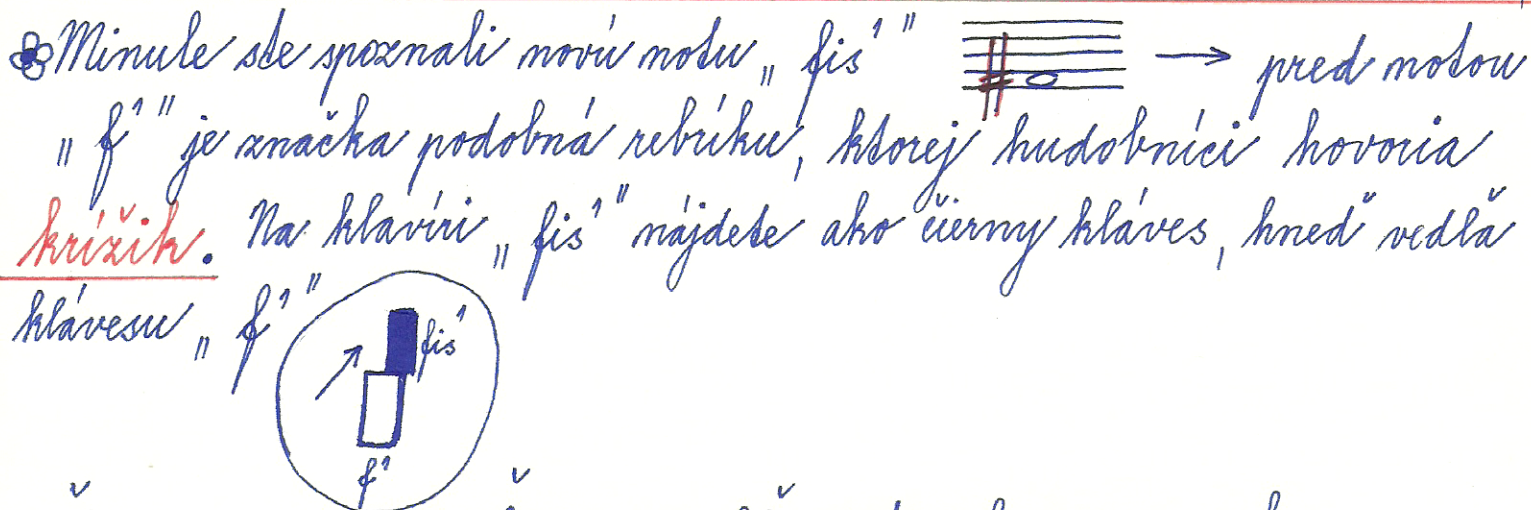 Minule ste spoznali novú notu „ fis¹ " → pred notou
„ f¹ " je značka podobná rebríku, ktorej hudobníci hovoria
krížik. Na klavíri „ fis¹ " nájdete ako čierny kláves, hneď vedľa
klávesu „ f¹ "
fis¹
f¹